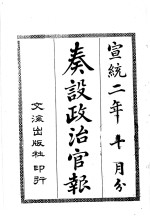 宣統二年十月分
奏設政治官報
文海出版社印行